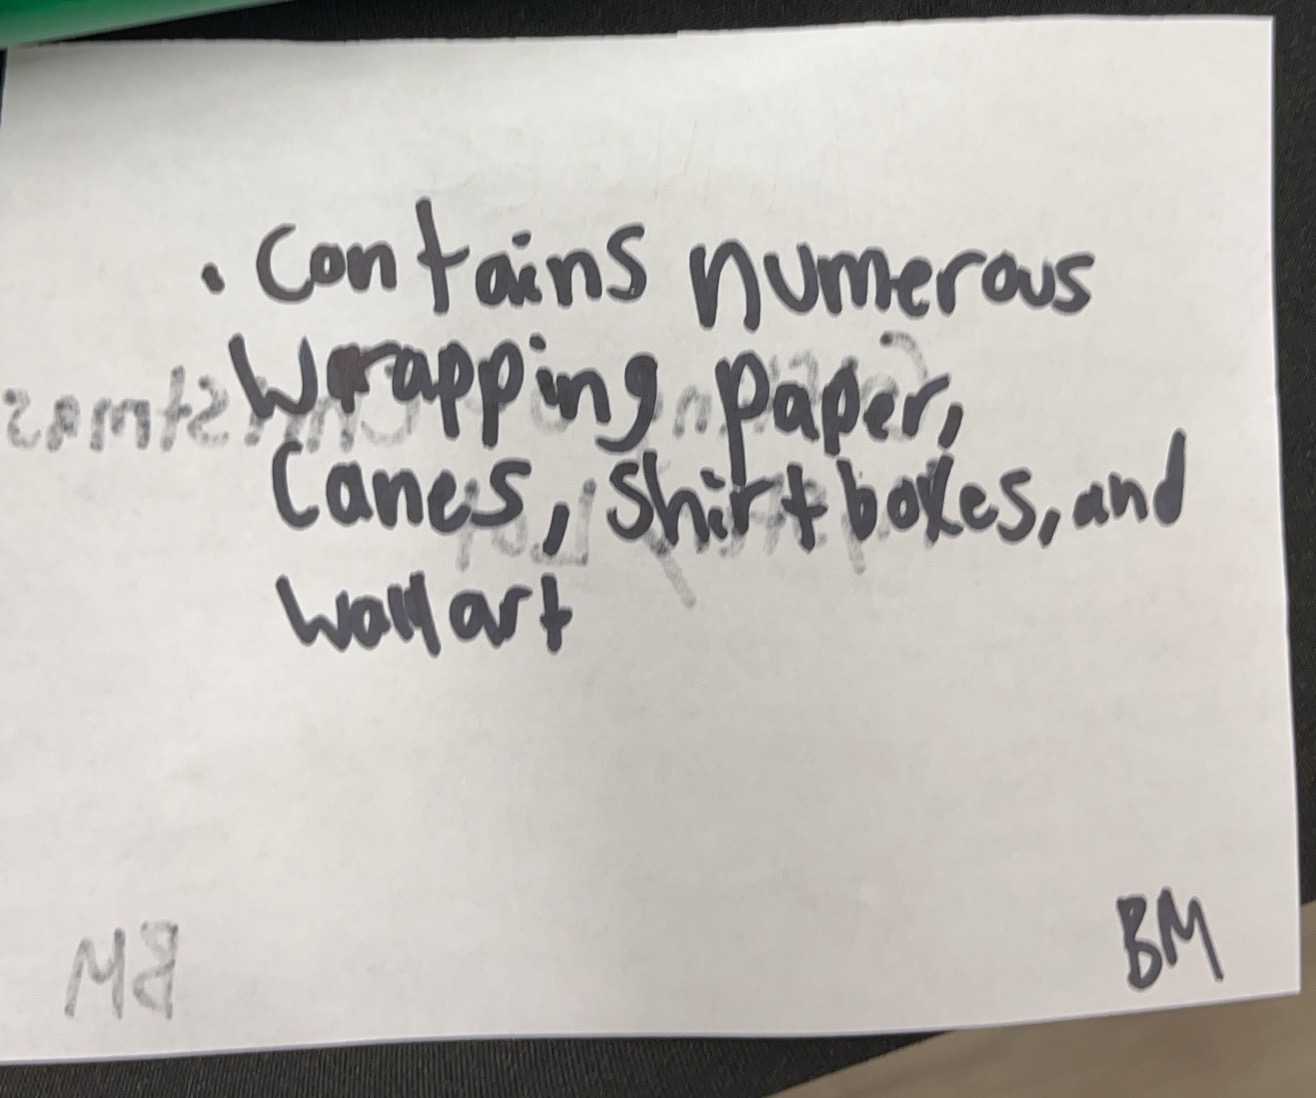 • Contains numerous
Wrapping paper,
Canes, Shirt boxes, and
wall art
BM
Christmas
BM